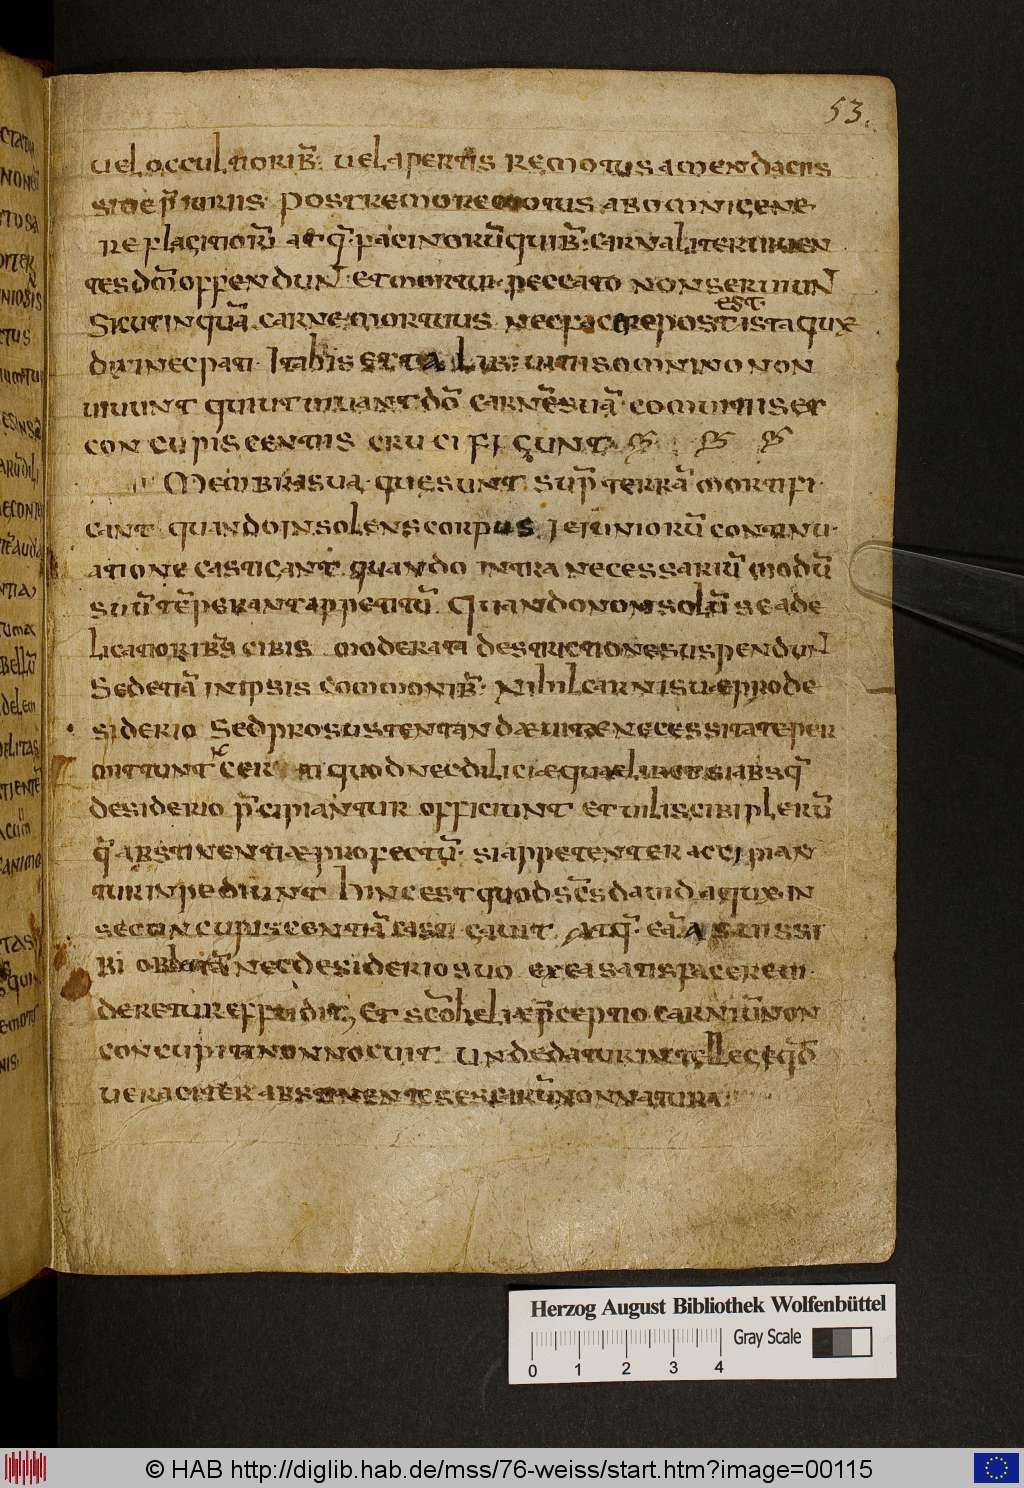 53.
uel occultiorib; uel apertis remotus amendaciis
siue p̄iuriis postremo remotus abomni genere
re flagitiorū atq; facinorū quib; carnaliter uiuen
tes dm̄ offendun̄t et mortui peccato non seruiun̄t
Sicut inquā carne mortuus nec facere potest ista quę
dixi nec pati Ita his et talib; uitiis omnino non
uiuunt qui ut uiuant dō carnē suā cum uitiis et
concupiscentiis crucifigunt
Membra sua que sunt sup̄ terrā mortifi
cant quando insolens corpus ieiuniorū continu
atione castigant quando intra necessariū modū
suū tēperant appetitū Quando non solū se a de
licatiorib; cibis moderata destructione suspendun̄t
Sed etiā in ipsis commonib; Nihil carnis suę pro de
siderio Sed pro sustentandæ uitæ necessitate per
mittunt quod nec diliciæ quaelibet si absq;
desiderio p̄cipiantur officiunt et uiles cibi plerū
q; abstinentiæ profectū si appetenter accipian
tur inpediunt hinc est quod sc̄s dauid aquę in
se concupiscentiā castigauit Atq; eā a suis si
bi oblatā nec desiderio suo ex ea satisfacere ui
deretur effudit, Et sc̄o heliæ p̄ceptio carniū non
concupita non nocuit unde datur intellegi qd̄
ueraciter abstinentes escarū non natura
Herzog August Bibliothek Wolfenbüttel
0 1 2 3 4 Gray Scale
© HAB http://diglib.hab.de/mss/76-weiss/start.htm?image=00115